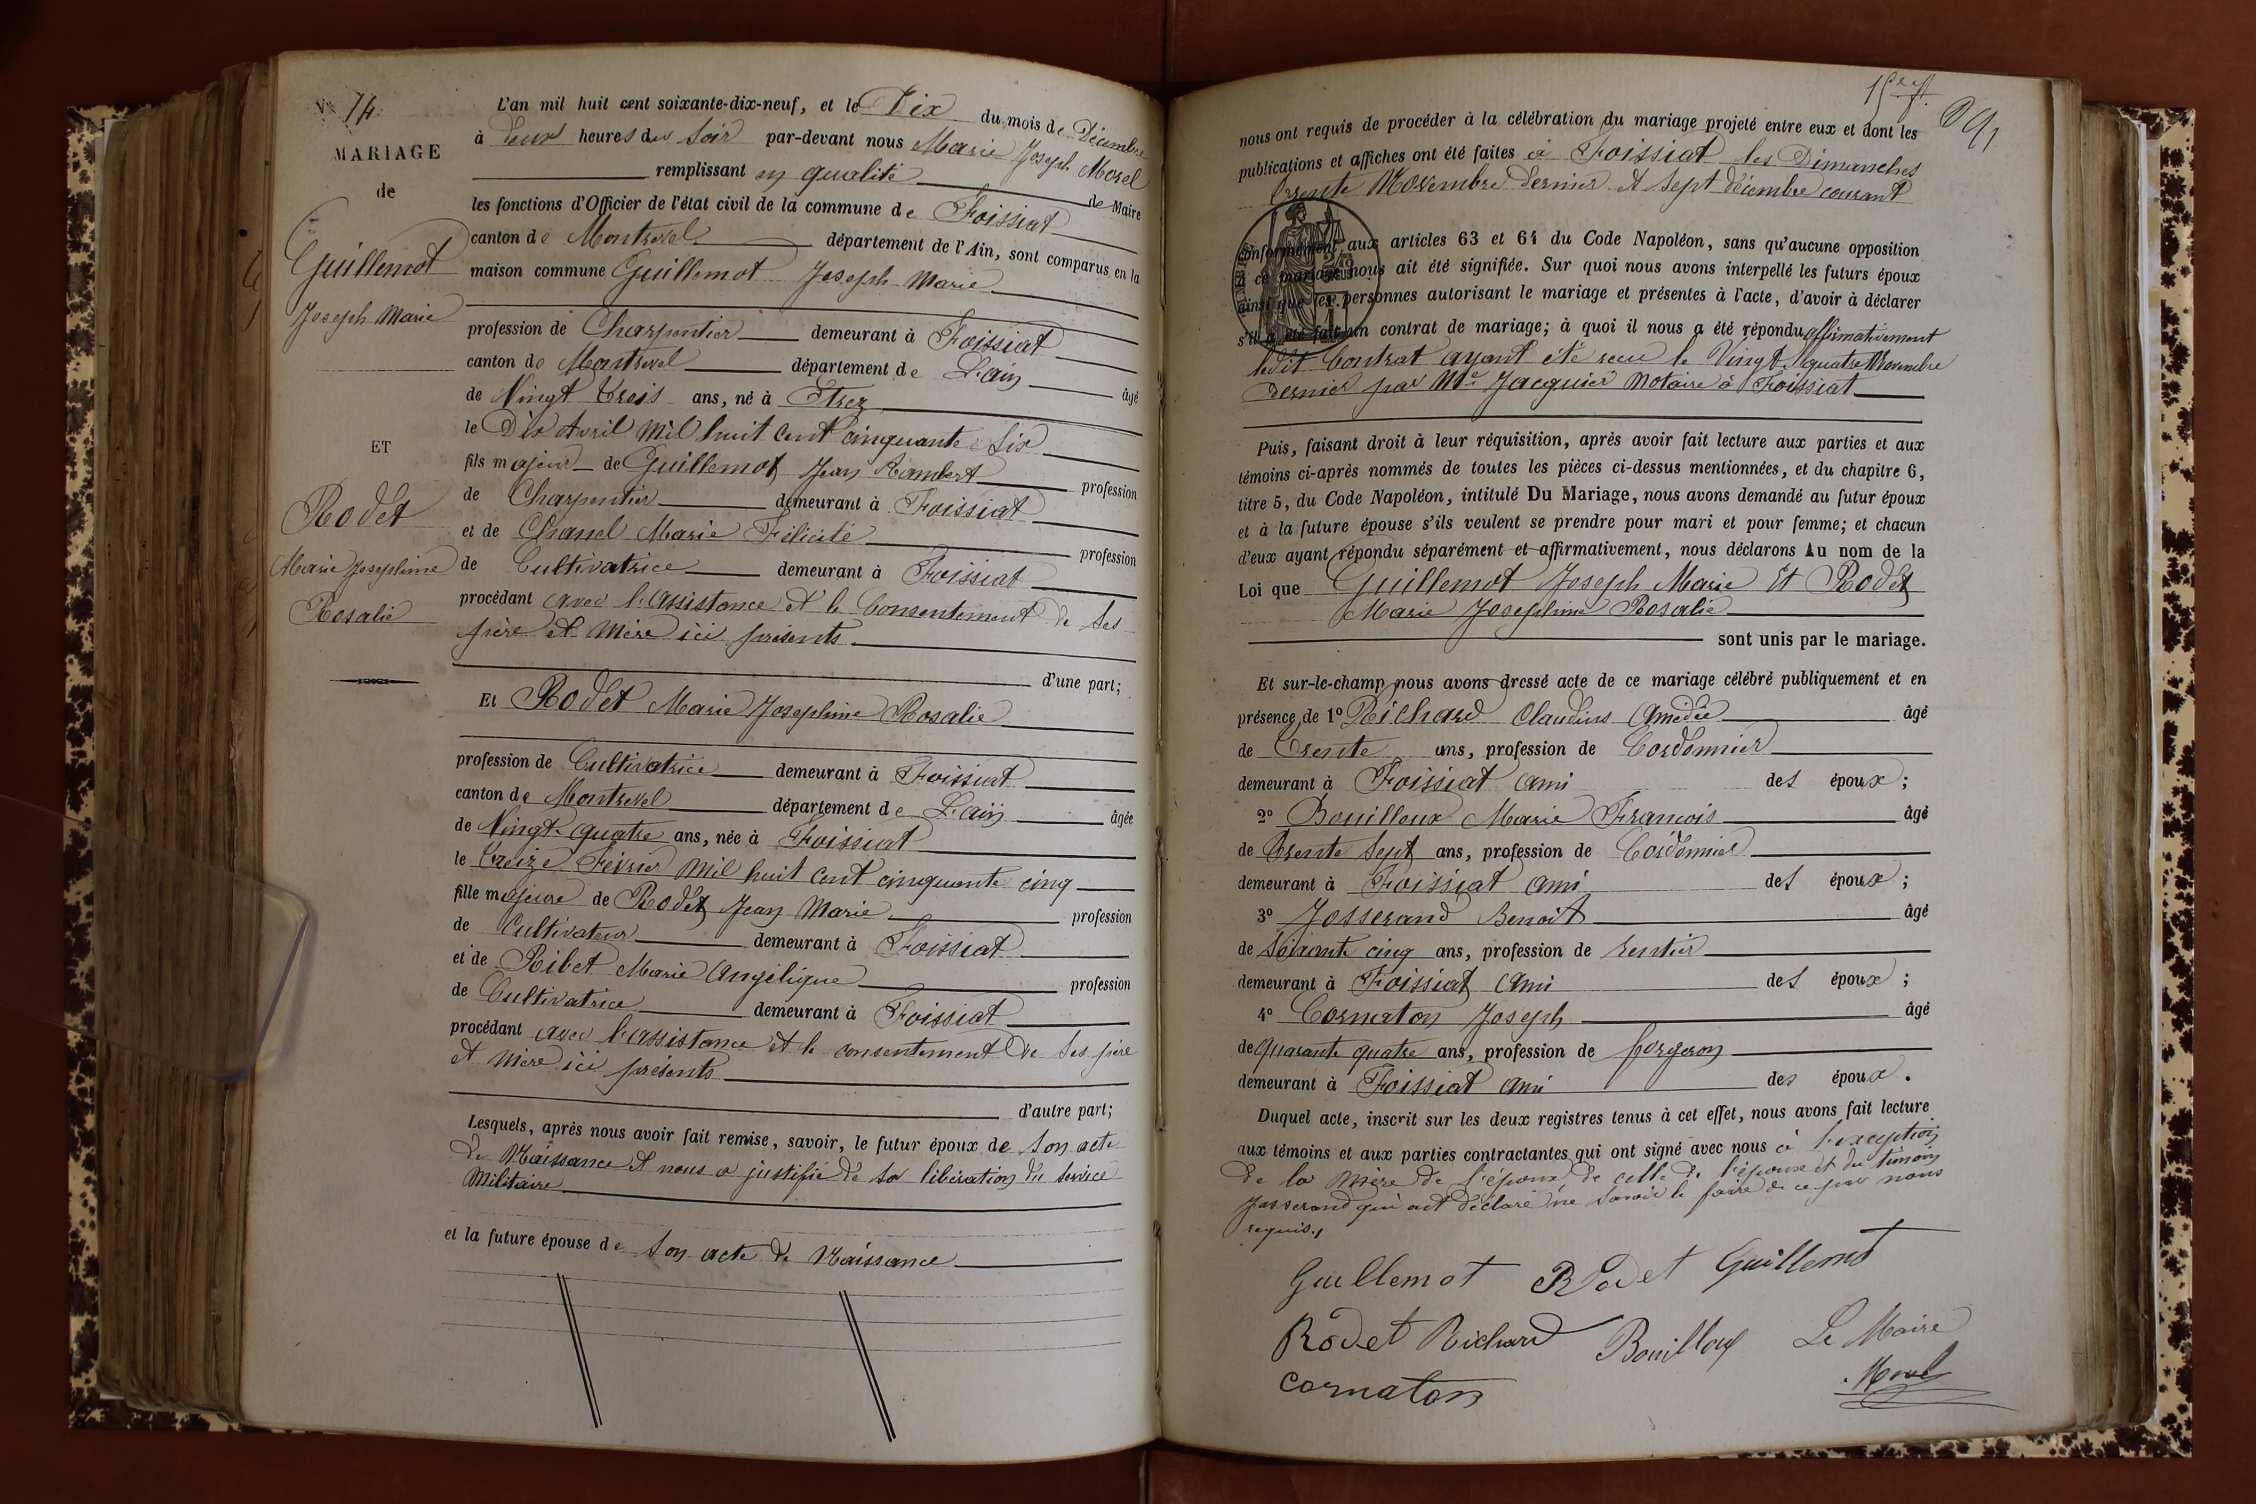 N° 14
MARIAGE
de
Guillemot
Joseph Marie
ET
Rodet
Marie Josephine
Rosalie
L'an mil huit cent soixante-dix-neuf, et le Dix du mois de Décembre
à deux heures du Soir par-devant nous Marie Joseph Morel
remplissant en qualité de Maire
les fonctions d'Officier de l'état civil de la commune de Foissiat
canton de Montrevel département de l'Ain, sont comparus en la
maison commune Guillemot Joseph Marie
profession de Charpentier demeurant à Foissiat
canton de Montrevel département de L'ain âgé
de Vingt trois ans, né à Etrez
le Dix Avril mil huit cent cinquante Six
fils majeur de Guillemot Jean Rambert profession
de Charpentier demeurant à Foissiat
et de Chanel Marie Félicité profession
de Cultivatrice demeurant à Foissiat
procédant avec l'assistance et le Consentement de Ses
père et mère ici présents
d'une part;
Et Rodet Marie Josephine Rosalie
profession de Cultivatrice demeurant à Foissiat
canton de Montrevel département de L'ain âgée
de Vingt quatre ans, née à Foissiat
le treize Février mil huit cent cinquante cinq
fille majeure de Rodet Jean Marie profession
de Cultivateur demeurant à Foissiat
et de Ribet Marie Angélique profession
de Cultivatrice demeurant à Foissiat
procédant avec l'assistance et le consentement de Ses père
et mère ici présents
d'autre part;
Lesquels, après nous avoir fait remise, savoir, le futur époux de Son acte
de Naissance et nous a justifié de sa libération du service
Militaire
et la future épouse de Son acte de Naissance
nous ont requis de procéder à la célébration du mariage projeté entre eux et dont les
publications et affiches ont été faites à Foissiat les Dimanches
trente Novembre dernier et Sept décembre courant
conformément aux articles 63 et 64 du Code Napoléon, sans qu'aucune opposition
à ce mariage nous ait été signifiée. Sur quoi nous avons interpellé les futurs époux
ainsi que les personnes autorisant le mariage et présentes à l'acte, d'avoir à déclarer
s'il a été fait un contrat de mariage; à quoi il nous a été répondu affirmativement
ledit Contrat ayant été reçu le Vingt quatre Novembre
dernier par Me Jacquier Notaire à Foissiat
Puis, faisant droit à leur réquisition, après avoir fait lecture aux parties et aux
témoins ci-après nommés de toutes les pièces ci-dessus mentionnées, et du chapitre 6,
titre 5, du Code Napoléon, intitulé Du Mariage, nous avons demandé au futur époux
et à la future épouse s'ils veulent se prendre pour mari et pour femme; et chacun
d'eux ayant répondu séparément et affirmativement, nous déclarons Au nom de la
Loi que Guillemot Joseph Marie Et Rodet
Marie Josephine Rosalie
sont unis par le mariage.
Et sur-le-champ nous avons dressé acte de ce mariage célébré publiquement et en
présence de 1° Richard Claudius Amédée âgé
de trente ans, profession de Cordonnier
demeurant à Foissiat ami des époux;
2° Bouilloux Marie François âgé
de trente Sept ans, profession de Cordonnier
demeurant à Foissiat ami des époux;
3° Josserand Benoit âgé
de soixante cinq ans, profession de rentier
demeurant à Foissiat ami des époux;
4° Cornaton Joseph âgé
de quarante quatre ans, profession de forgeron
demeurant à Foissiat ami des époux.
Duquel acte, inscrit sur les deux registres tenus à cet effet, nous avons fait lecture
aux témoins et aux parties contractantes qui ont signé avec nous à l'exception
de la mère de l'époux de celle de l'épouse et du témoin
Josserand qui ont déclaré ne savoir le faire de ce par nous
requis.
Guillemot Rodet Guillemot
Rodet Richard Bouilloux Le Maire
Cornaton Morel